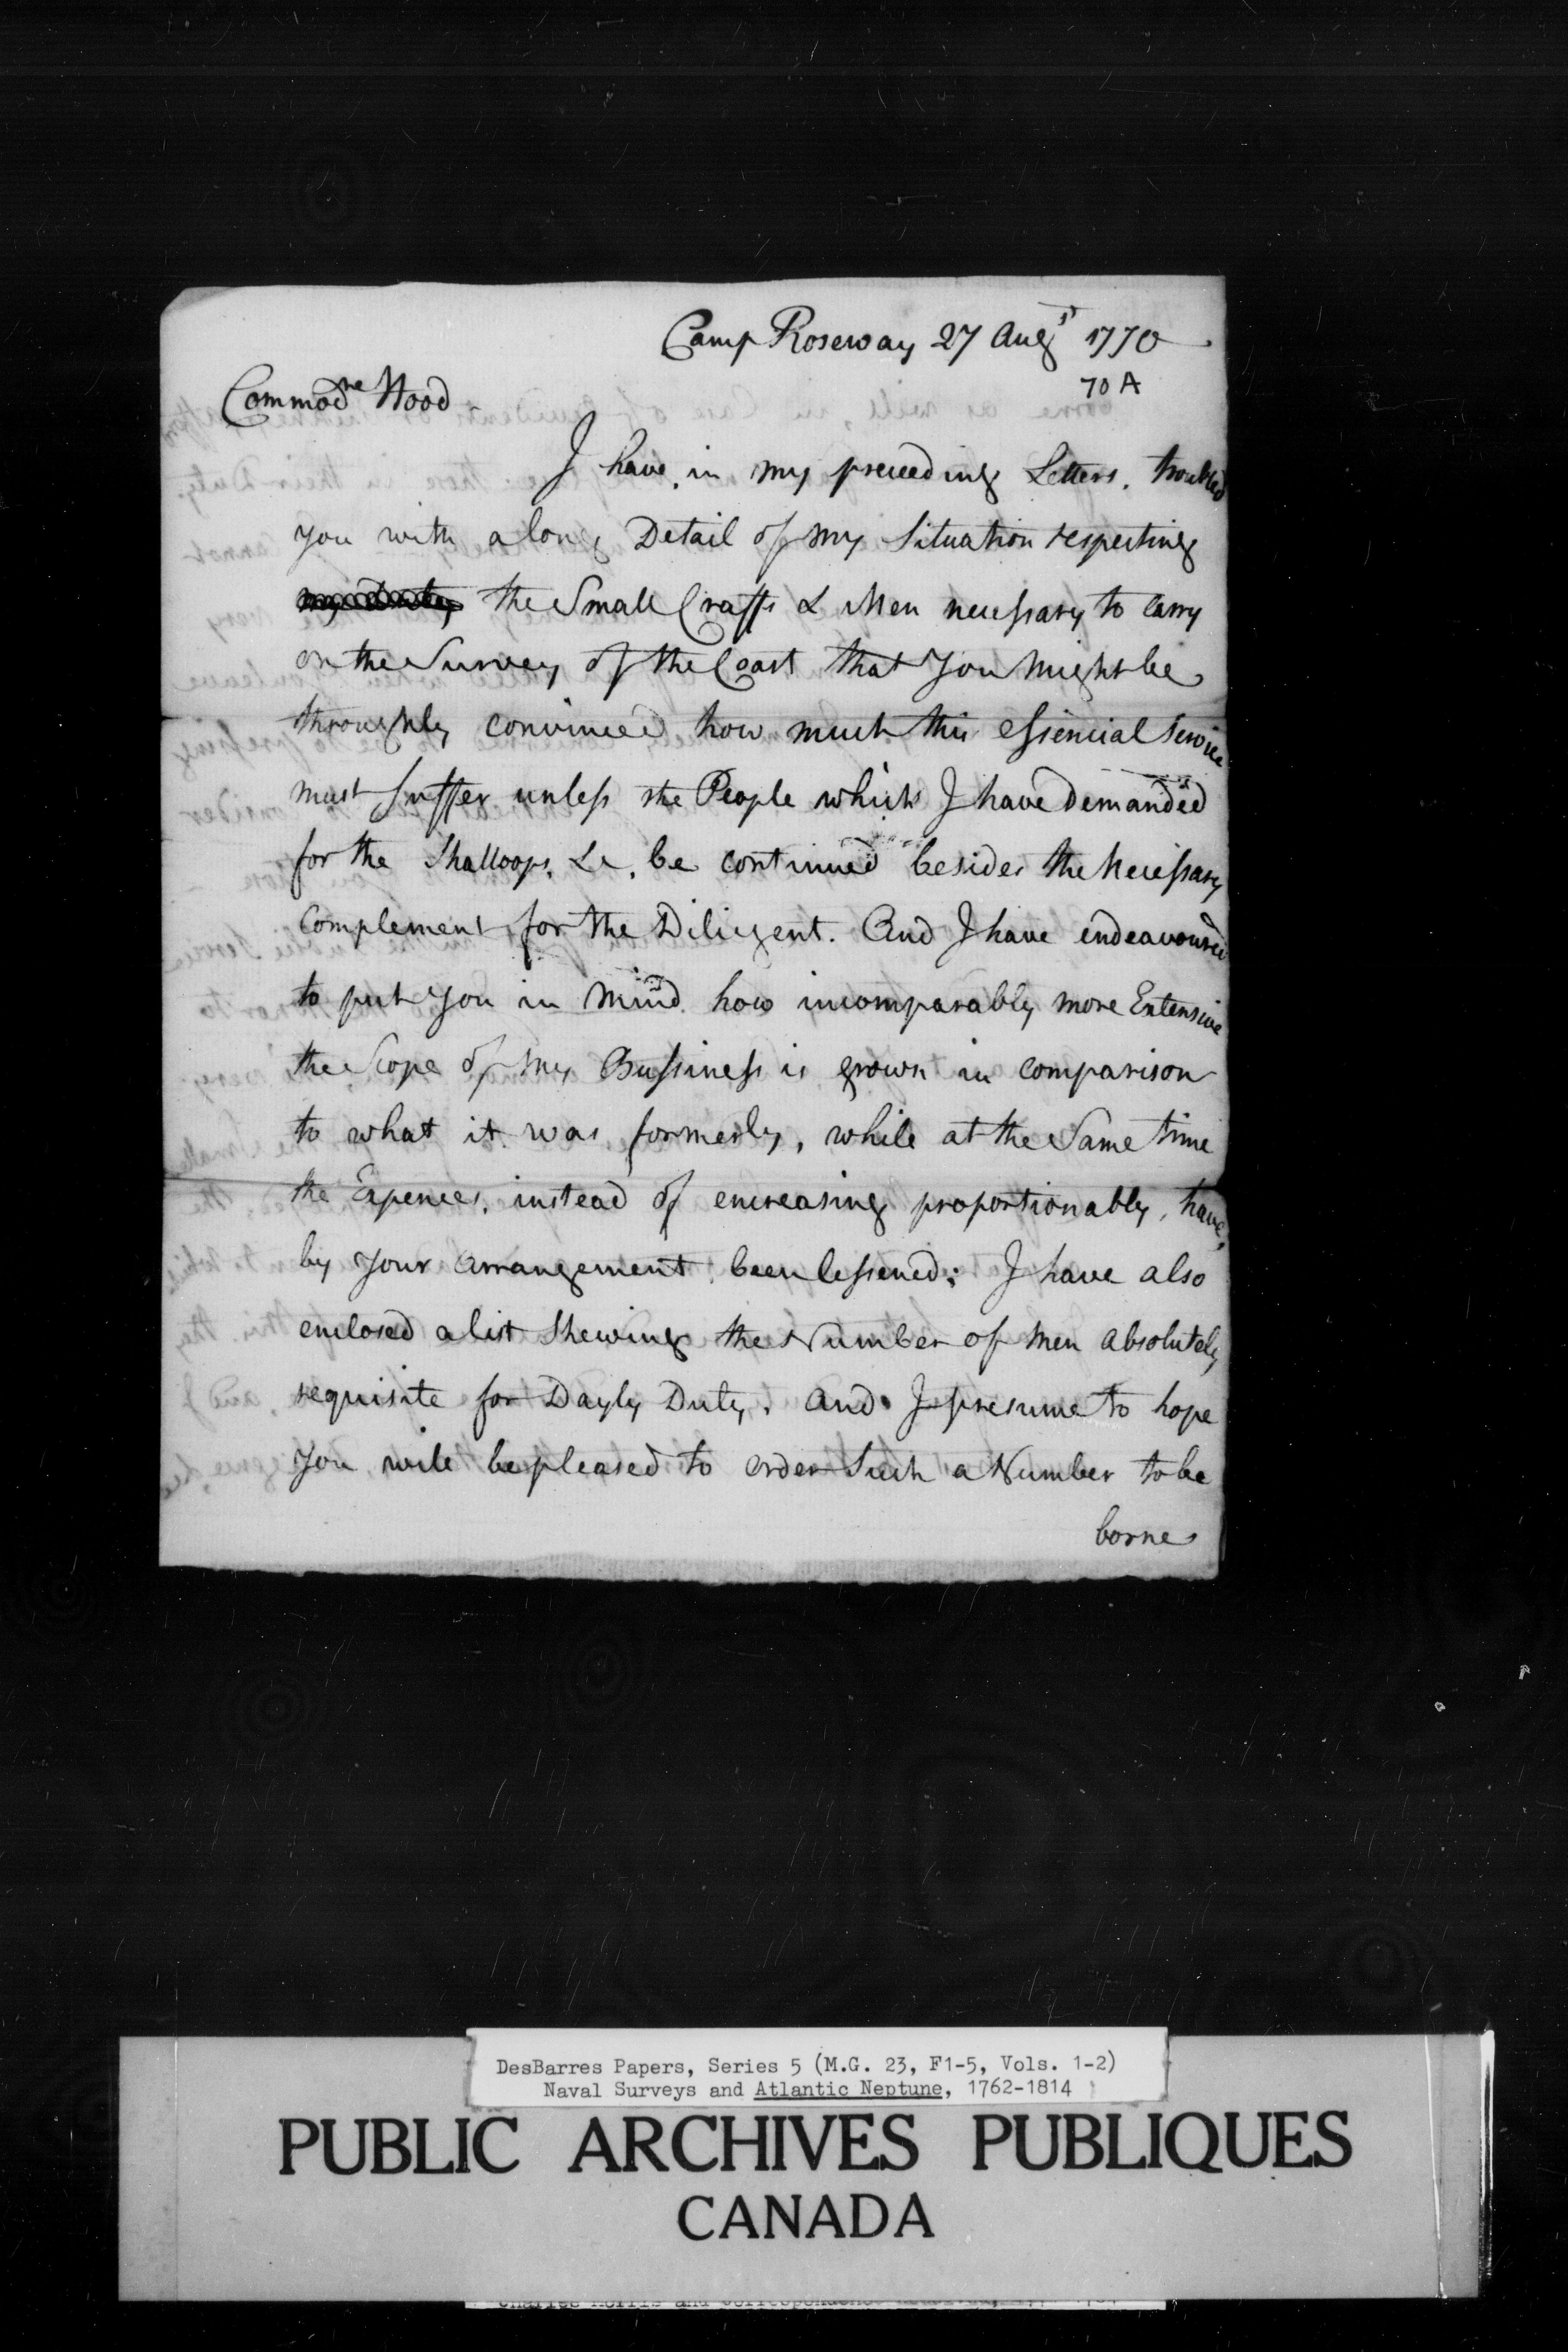 Camp Roseway 27 Augst 1770
70 A
Commodre Hood
I have, in my preceeding Letters, troubled
you with a long Detail of my Situation respecting
the Small Craffts & Men necessary to carry
on the Survey of the Coast that You might be
throughly convinced how much this essiencial Service
must suffer unless the People which I have demanded
for the Shalloops, &c, be continued besides the Necessary
Complement for the Diligent. And I have endeavoured
to put You in Mind how incomparably more Extensive
the Scope of my Bussiness is grown in comparison
to what it was formerly, while at the Same time
the Expences, instead of encreasing proportionably, have,
by Your Arrangement been lessened; I have also
enclosed a list Shewing the Number of Men absolutely
requisite for Dayly Duty, and I presume to hope
You will be pleased to order Such a Number to be
borne
DesBarres Papers, Series 5 (M.G. 23, F1-5, Vols. 1-2)
Naval Surveys and Atlantic Neptune, 1762-1814
PUBLIC ARCHIVES PUBLIQUES
CANADA